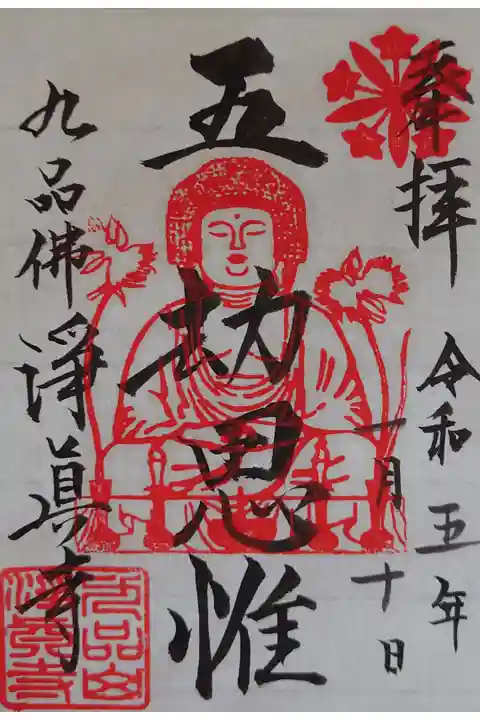 奉拝
令和五年
一月十日
五劫思惟
九品佛淨眞寺
九品山
淨眞寺